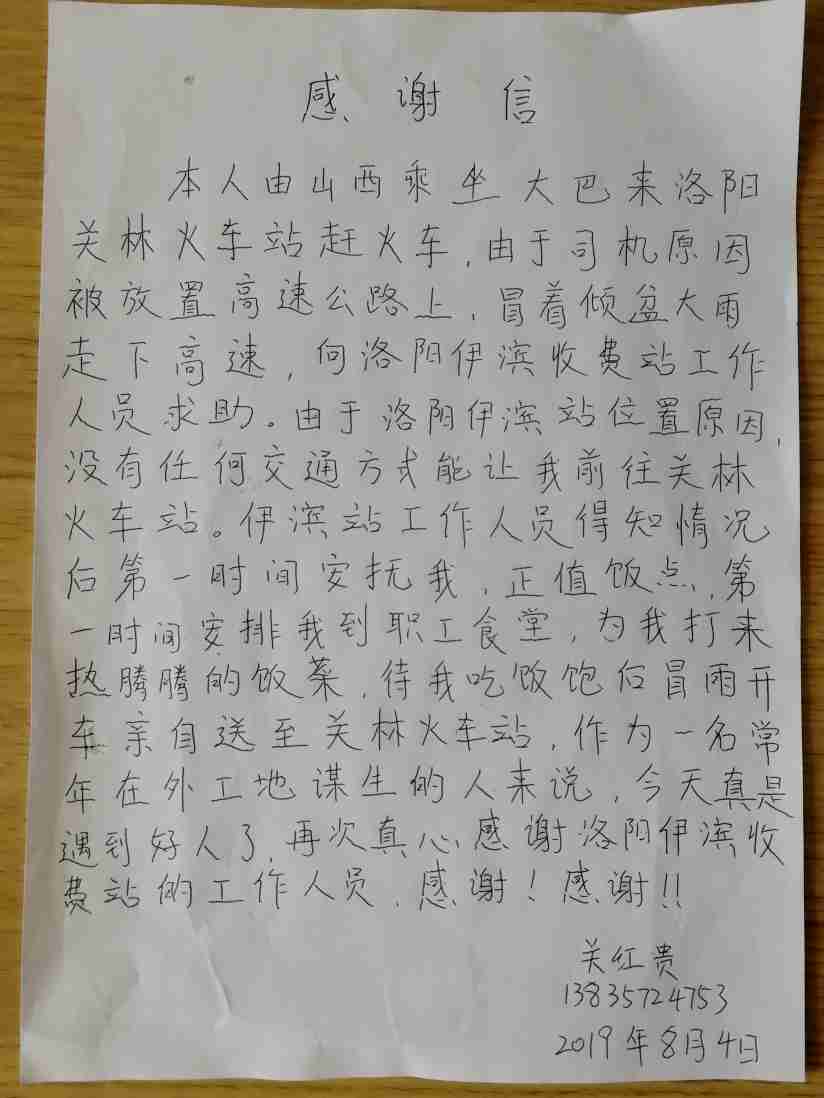 感谢信
本人由山西乘坐大巴来洛阳
关林火车站赶火车,由于司机原因
被放置高速公路上,冒着倾盆大雨
走下高速,向洛阳伊滨收费站工作
人员求助。由于洛阳伊滨站位置原因,
没有任何交通方式能让我前往关林
火车站。伊滨站工作人员得知情况
后第一时间安抚我,正值饭点,第
一时间安排我到职工食堂,为我打来
热腾腾的饭菜,待我吃饭饱后冒雨开
车亲自送至关林火车站,作为一名常
年在外工地谋生的人来说,今天真是
遇到好人了,再次真心感谢洛阳伊滨收
费站的工作人员,感谢!感谢!!
关红贵
13835724753
2019年8月4日